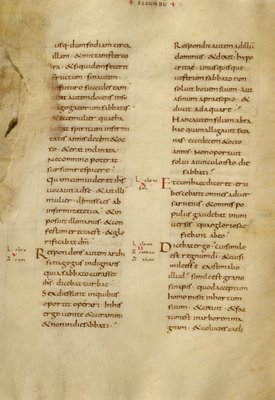 SECUNDU
usq; dum fodiam circa
illam . & mittam sterco
ra . & siquidem fecerit
fructum . sin autem
in futuro succides eam
erat autem docens insi
nagoga eorum sabbatis
& ecce mulier quae ha
bebat spiritum infirmi
tatis annis decem & oc
to . & erat inclinata
nec omnino poterat
sursum respicere .
Quam cum uider& ihs
uocauit adse . & ait illi
mulier . dimissa es ab
infirmitate tua . & im
posuit illi manus . & con
festim erecta est . & glo
rificabat dm .
Respondens autem archi
synagogus indignans
quia sabbato curass&
ihs . dicebat turbae
Sex dies sunt inquibus
oport& operari . In his
ergo uenite & curamini
& non indie sabbati .
Respondit autem ad illu
dominus . & dixit . hypo
critae . unusquisque
uestrum sabbato non
soluit bouem suum . aut
asinum apraesepio . &
ducit adaquare .
Hanc autem filiam abra
hae quam alligauit sata
nas . ecce decem & octo
annis . Non oportuit
solui auinculo isto die
sabbati
Et cum haec dicer& . eru
bescebant omnes aduer
sarii eius . & omnis po
pulus gaudebat inuni
uersis . quae gloriose fi
ebant abeo
Dicebat ergo . cui simile
est regnum di . & cui si
mile esse existimabo
illud . simile est grano
sinapis . quod acceptum
homo misit inhortum
suum . & creuit . & fac
tum est inarborem ma
gnam . & uolucres caeli